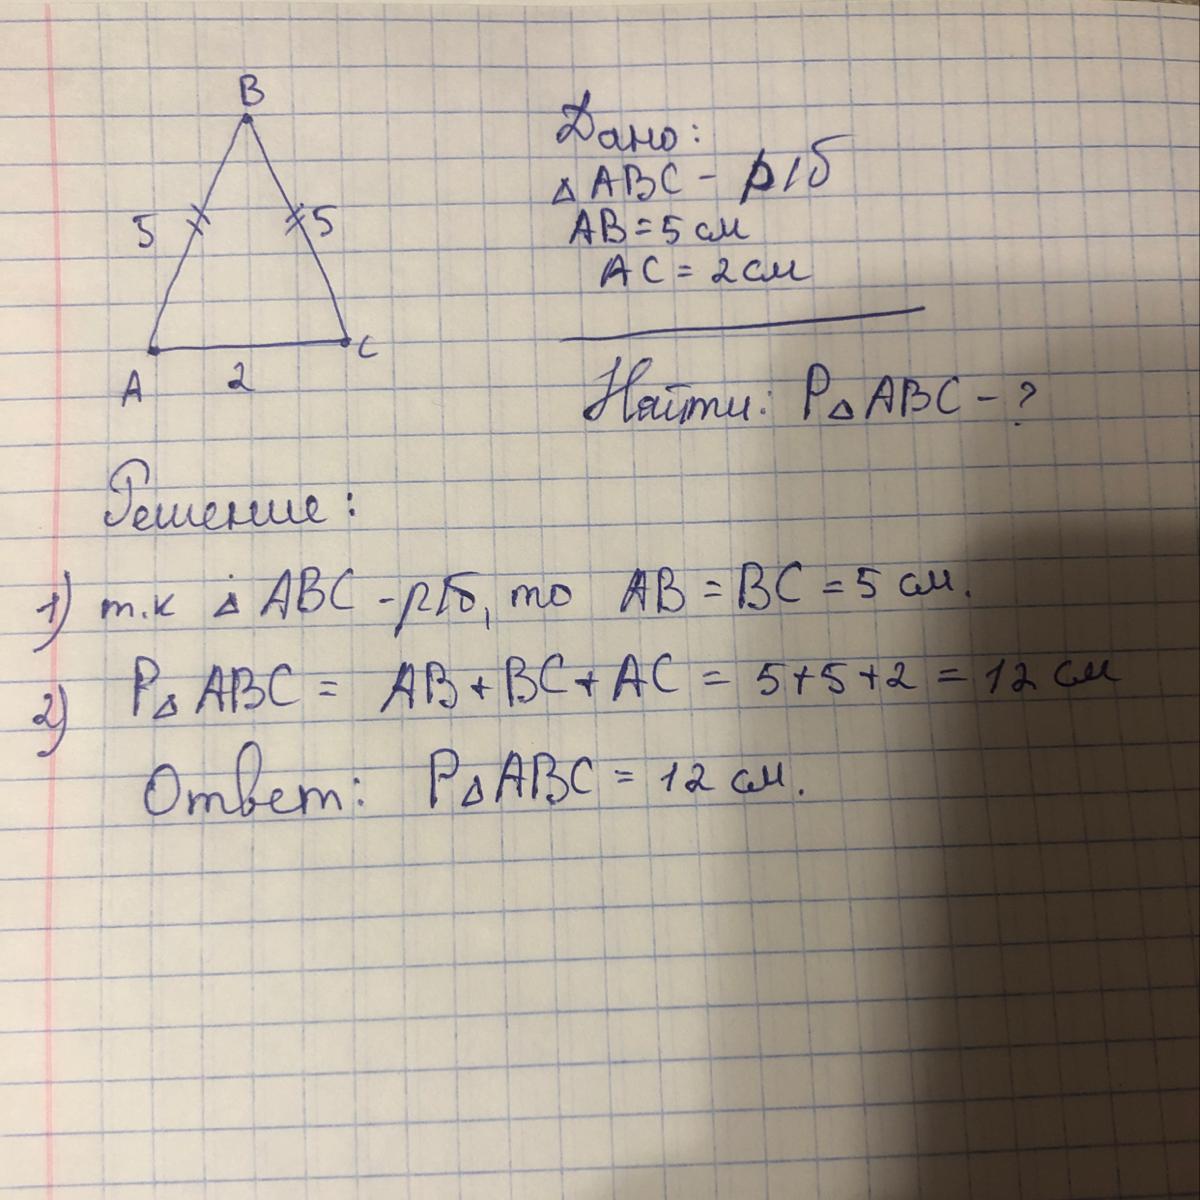 B
5
5
A
2
C
Дано:
△ ABC - р/б
AB = 5 см
AC = 2 см
Найти: P△ ABC - ?
Решение:
1) т.к △ ABC - р/б, то AB = BC = 5 см.
2) P△ ABC = AB + BC + AC = 5+5+2 = 12 см
Ответ: P△ ABC = 12 см.